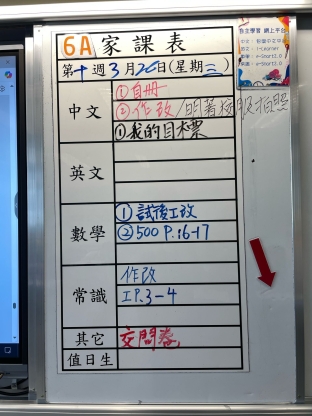 6A 家課表
第十週3月26日(星期三)
中文
①自冊
②作改/明著校服拍照
①我的目標
英文
數學
①試後工改
②500 P.16-17
常識
作改
工P.3-4
其它
交問卷
值日生
自主學習 網上平台